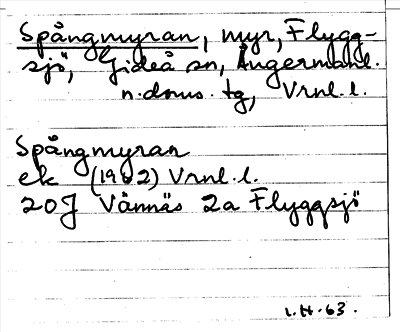 Spångmyran, myr, Flygg-
sjö, Gideå sn, Ångermanl.
n. doms. tg, Vrnl. l.
Spångmyran
ek (1962) Vrnl. l.
20J Vännäs 2a Flyggsjö
L.H. 63.